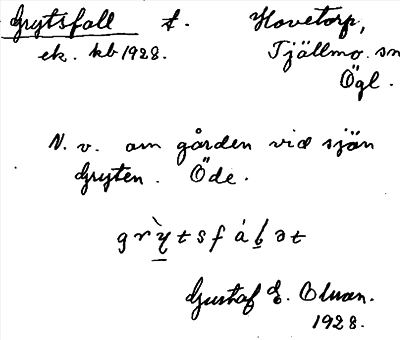 Grytsfall t. Hovetorp,
ek. kb 1928. Tjällmo. sn
Ögl.
N. v. om gården vid sjön
Gryten. Öde.
grỳtsfáḷət
Gustaf E. Olsson.
1928.